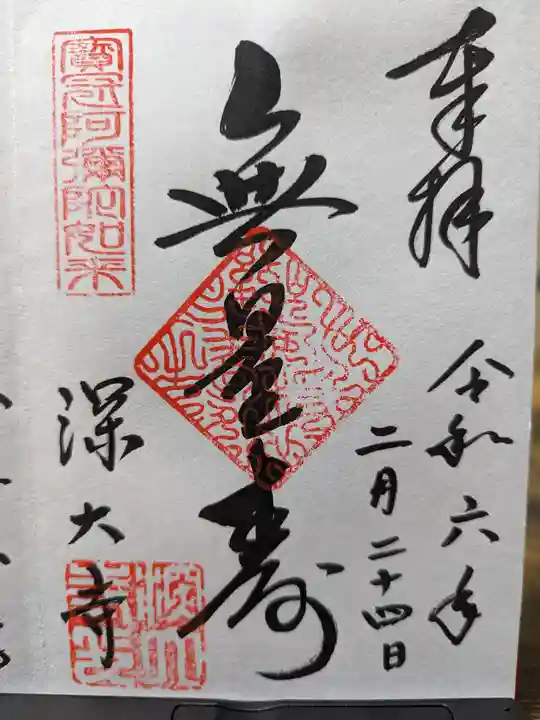 奉拝
令和六年
二月二十四日
無量寿
寳冠阿彌陀如来
深大寺